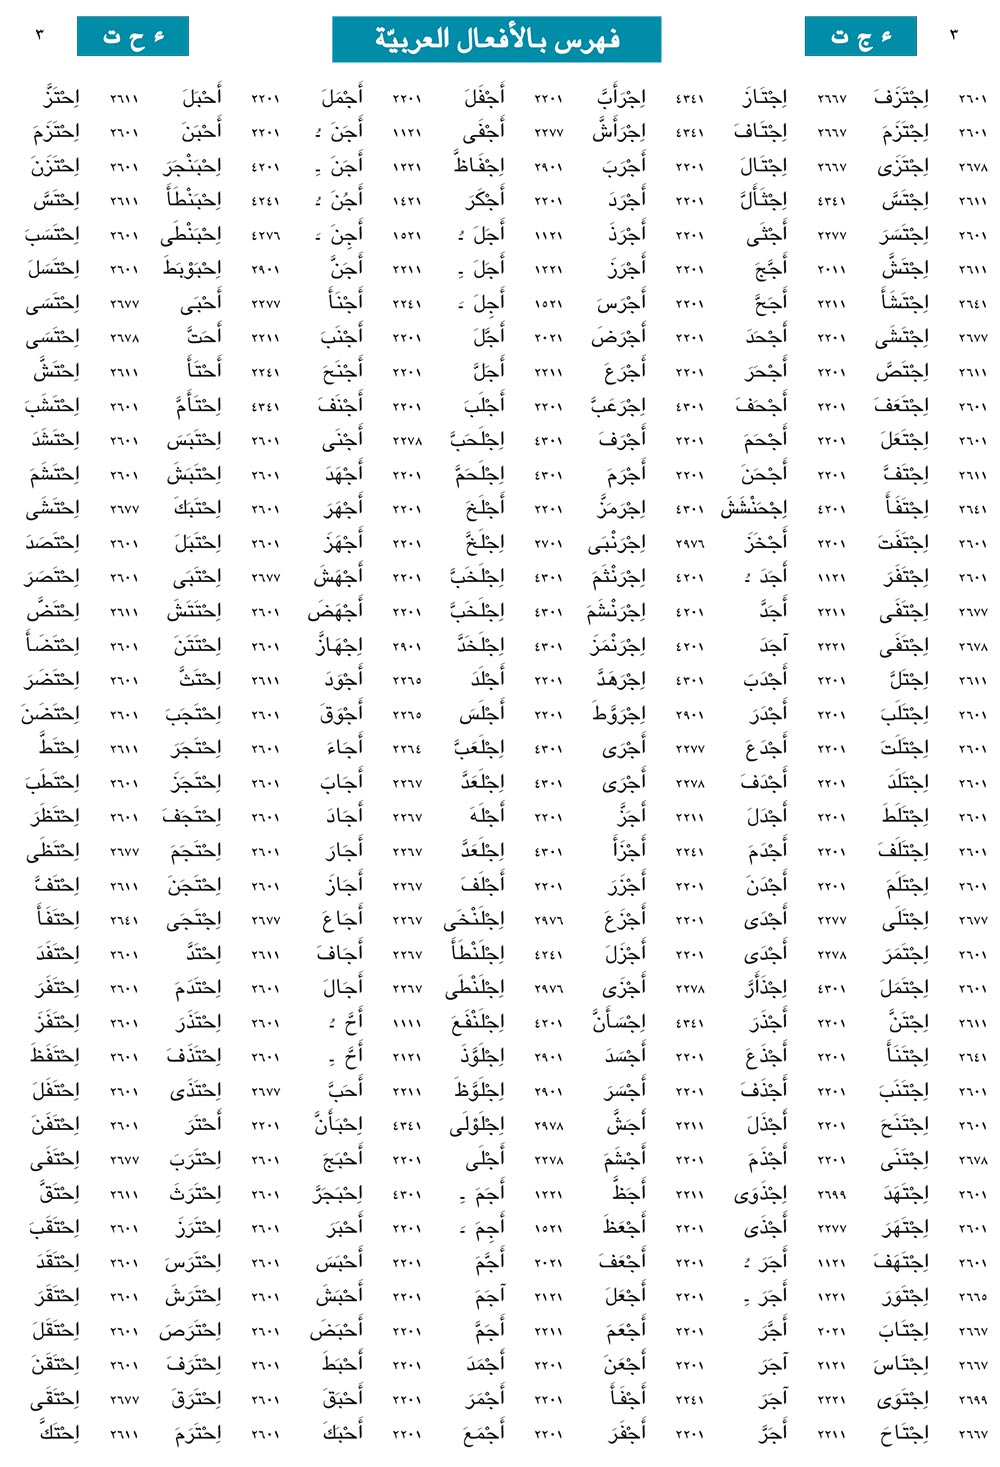 ٣ ء ج ت فهرس بالأفعال العربيّة ء ح ت ٣
٢٦٠١ اِجْتَزَفَ ٢٦٦٧ اِجْتَازَ ٤٣٤١ اِجْرَأَبَّ ٢٢٠١ أَجْفَلَ ٢٢٠١ أَجْمَلَ ٢٢٠١ أَحْبَلَ ٢٦١١ اِحْتَزَّ
٢٦٠١ اِجْتَزَمَ ٢٦٦٧ اِجْتَافَ ٤٣٤١ اِجْرَأَشَّ ٢٢٧٧ أَجْفَى ١١٢١ أَجَنَ ـُ ٢٢٠١ أَحْبَنَ ٢٦٠١ اِحْتَزَمَ
٢٦٧٨ اِجْتَزَى ٢٦٦٧ اِجْتَالَ ٢٢٠١ أَجْرَبَ ٢٩٠١ اِجْفَاظَّ ١٢٢١ أَجَنَ ـِ ٤٢٠١ اِحْبَنْجَرَ ٢٦٠١ اِحْتَزَنَ
٢٦١١ اِجْتَسَّ ٤٣٤١ اِجْثَأَلَّ ٢٢٠١ أَجْرَدَ ٢٢٠١ أَجْكَرَ ١٤٢١ أَجُنَ ـُ ٤٢٤١ اِحْبَنْطَأَ ٢٦١١ اِحْتَسَّ
٢٦٠١ اِجْتَسَرَ ٢٢٧٧ أَجْثَى ٢٢٠١ أَجْرَذَ ١١٢١ أَجَلَ ـُ ١٥٢١ أَجِنَ ـَ ٤٢٧٦ اِحْبَنْطَى ٢٦٠١ اِحْتَسَبَ
٢٦١١ اِجْتَشَّ ٢٠١١ أَجَّجَ ٢٢٠١ أَجْرَزَ ١٢٢١ أَجَلَ ـِ ٢٢١١ أَجَنَّ ٢٩٠١ اِحْبَوْبَطَ ٢٦٠١ اِحْتَسَلَ
٢٦٤١ اِجْتَشَأَ ٢٢١١ أَجَحَّ ٢٢٠١ أَجْرَسَ ١٥٢١ أَجِلَ ـَ ٢٢٤١ أَجْنَأَ ٢٢٧٧ أَحْبَى ٢٦٧٧ اِحْتَسَى
٢٦٧٧ اِجْتَشَى ٢٢٠١ أَجْحَدَ ٢٢٠١ أَجْرَضَ ٢٠٢١ أَجَّلَ ٢٢٠١ أَجْنَبَ ٢٢١١ أَحَتَّ ٢٦٧٨ اِحْتَسَى
٢٦١١ اِجْتَصَّ ٢٢٠١ أَجْحَرَ ٢٢٠١ أَجْرَعَ ٢٢١١ أَجَلَّ ٢٢٠١ أَجْنَحَ ٢٢٤١ أَحْتَأَ ٢٦١١ اِحْتَشَّ
٢٦٠١ اِجْتَعَفَ ٢٢٠١ أَجْحَفَ ٤٣٠١ اِجْرَعَبَّ ٢٢٠١ أَجْلَبَ ٢٢٠١ أَجْنَفَ ٤٣٤١ اِحْتَأَمَّ ٢٦٠١ اِحْتَشَبَ
٢٦٠١ اِجْتَعَلَ ٢٢٠١ أَجْحَمَ ٢٢٠١ أَجْرَفَ ٤٣٠١ اِجْلَحَبَّ ٢٢٧٨ أَجْنَى ٢٦٠١ اِحْتَبَسَ ٢٦٠١ اِحْتَشَدَ
٢٦١١ اِجْتَفَّ ٢٢٠١ أَجْحَنَ ٢٢٠١ أَجْرَمَ ٤٣٠١ اِجْلَحَمَّ ٢٢٠١ أَجْهَدَ ٢٦٠١ اِحْتَبَشَ ٢٦٠١ اِحْتَشَمَ
٢٦٤١ اِجْتَفَأَ ٤٢٠١ اِجْحَنْشَشَ ٤٣٠١ اِجْرَمَزَّ ٢٢٠١ أَجْلَخَ ٢٢٠١ أَجْهَرَ ٢٦٠١ اِحْتَبَكَ ٢٦٧٧ اِحْتَشَى
٢٦٠١ اِجْتَفَتَ ٢٢٠١ أَجْخَرَ ٢٩٧٦ اِجْرَنْبَى ٢٧٠١ اِجْلَخَّ ٢٢٠١ أَجْهَزَ ٢٦٠١ اِحْتَبَلَ ٢٦٠١ اِحْتَصَدَ
٢٦٠١ اِجْتَفَرَ ١١٢١ أَجَدَ ـُ ٤٢٠١ اِجْرَنْثَمَ ٤٣٠١ اِجْلَخَبَّ ٢٢٠١ أَجْهَشَ ٢٦٧٧ اِحْتَبَى ٢٦٠١ اِحْتَصَرَ
٢٦٧٧ اِجْتَفَى ٢٢١١ أَجَدَّ ٤٢٠١ اِجْرَنْشَمَ ٤٣٠١ اِجْلَخَبَّ ٢٢٠١ أَجْهَضَ ٢٦٠١ اِحْتَتَشَ ٢٦١١ اِحْتَضَّ
٢٦٧٨ اِجْتَفَى ٢٢٢١ آجَدَ ٤٢٠١ اِجْرَنْمَزَ ٤٣٠١ اِجْلَخَدَّ ٢٩٠١ اِجْهَازَّ ٢٦٠١ اِحْتَتَنَ ٢٦٠١ اِحْتَضَأَ
٢٦١١ اِجْتَلَّ ٢٢٠١ أَجْدَبَ ٤٣٠١ اِجْرَهَدَّ ٢٢٠١ أَجْلَدَ ٢٢٦٥ أَجْوَدَ ٢٦١١ اِحْتَثَّ ٢٦٠١ اِحْتَضَرَ
٢٦٠١ اِجْتَلَبَ ٢٢٠١ أَجْدَرَ ٢٩٠١ اِجْرَوَّطَ ٢٢٠١ أَجْلَسَ ٢٢٦٥ أَجْوَقَ ٢٦٠١ اِحْتَجَبَ ٢٦٠١ اِحْتَضَنَ
٢٦٠١ اِجْتَلَتَ ٢٢٠١ أَجْدَعَ ٢٢٧٧ أَجْرَى ٤٣٠١ اِجْلَعَبَّ ٢٢٦٤ أَجَاءَ ٢٦٠١ اِحْتَجَرَ ٢٦١١ اِحْتَطَّ
٢٦٠١ اِجْتَلَدَ ٢٢٠١ أَجْدَفَ ٢٢٧٨ أَجْرَى ٤٣٠١ اِجْلَعَدَّ ٢٢٦٧ أَجَابَ ٢٦٠١ اِحْتَجَزَ ٢٦٠١ اِحْتَطَبَ
٢٦٠١ اِجْتَلَطَ ٢٢٠١ أَجْدَلَ ٢٢١١ أَجَزَّ ٢٢٠١ أَجْلَهَ ٢٢٦٧ أَجَادَ ٢٦٠١ اِحْتَجَفَ ٢٦٠١ اِحْتَظَرَ
٢٦٠١ اِجْتَلَفَ ٢٢٠١ أَجْدَمَ ٢٢٤١ أَجْزَأَ ٤٣٠١ اِجْلَعَدَّ ٢٢٦٧ أَجَارَ ٢٦٠١ اِحْتَجَمَ ٢٦٧٧ اِحْتَظَى
٢٦٠١ اِجْتَلَمَ ٢٢٠١ أَجْدَنَ ٢٢٠١ أَجْزَرَ ٢٢٠١ أَجْلَفَ ٢٢٦٧ أَجَازَ ٢٦٠١ اِحْتَجَنَ ٢٦١١ اِحْتَفَّ
٢٦٧٧ اِجْتَلَى ٢٢٧٧ أَجْدَى ٢٢٠١ أَجْزَعَ ٢٩٧٦ اِجْلَنْخَى ٢٢٦٧ أَجَاعَ ٢٦٧٧ اِحْتَجَى ٢٦٤١ اِحْتَفَأَ
٢٦٠١ اِجْتَمَرَ ٢٢٧٨ أَجْدَى ٢٢٠١ أَجْزَلَ ٤٢٤١ اِجْلَنْطَأَ ٢٢٦٧ أَجَافَ ٢٦١١ اِحْتَدَّ ٢٦٠١ اِحْتَفَدَ
٢٦٠١ اِجْتَمَلَ ٤٣٠١ اِجْذَأَرَّ ٢٢٧٨ أَجْزَى ٢٩٧٦ اِجْلَنْطَى ٢٢٦٧ أَجَالَ ٢٦٠١ اِحْتَدَمَ ٢٦٠١ اِحْتَفَرَ
٢٦١١ اِجْتَنَّ ٢٢٠١ أَجْذَرَ ٤٣٤١ اِجْسَأَنَّ ٤٢٠١ اِجْلَنْفَعَ ١١١١ أَحَّ ـُ ٢٦٠١ اِحْتَذَرَ ٢٦٠١ اِحْتَفَزَ
٢٦٤١ اِجْتَنَأَ ٢٢٠١ أَجْذَعَ ٢٢٠١ أَجْسَدَ ٢٩٠١ اِجْلَوَّذَ ٢١٢١ أَحَّ ـِ ٢٦٠١ اِحْتَذَفَ ٢٦٠١ اِحْتَفَظَ
٢٦٠١ اِجْتَنَبَ ٢٢٠١ أَجْذَفَ ٢٢٠١ أَجْسَرَ ٢٩٠١ اِجْلَوَّظَ ٢٢١١ أَحَبَّ ٢٦٧٧ اِحْتَذَى ٢٦٠١ اِحْتَفَلَ
٢٦٠١ اِجْتَنَحَ ٢٢٠١ أَجْذَلَ ٢٢١١ أَجَشَّ ٢٩٧٨ اِجْلَوْلَى ٤٣٤١ اِحْبَأَنَّ ٢٢٠١ أَحْتَرَ ٢٦٠١ اِحْتَفَنَ
٢٦٧٨ اِجْتَنَى ٢٢٠١ أَجْذَمَ ٢٢٠١ أَجْشَمَ ٢٢٧٨ أَجْلَى ٢٢٠١ أَحْبَجَ ٢٦٠١ اِحْتَرَبَ ٢٦٧٧ اِحْتَفَى
٢٦٠١ اِجْتَهَدَ ٢٦٩٩ اِجْذَوَى ٢٢١١ أَجَظَّ ١٢٢١ أَجَمَ ـِ ٤٣٠١ اِحْبَجَرَّ ٢٦٠١ اِحْتَرَثَ ٢٦١١ اِحْتَقَّ
٢٦٠١ اِجْتَهَرَ ٢٢٧٧ أَجْذَى ٢٢٠١ أَجْعَظَ ١٥٢١ أَجِمَ ـَ ٢٢٠١ أَحْبَرَ ٢٦٠١ اِحْتَرَزَ ٢٦٠١ اِحْتَقَبَ
٢٦٠١ اِجْتَهَفَ ١١٢١ أَجَرَ ـُ ٢٢٠١ أَجْعَفَ ٢٠٢١ أَجَّمَ ٢٢٠١ أَحْبَسَ ٢٦٠١ اِحْتَرَسَ ٢٦٠١ اِحْتَقَدَ
٢٦٦٥ اِجْتَوَرَ ١٢٢١ أَجَرَ ـِ ٢٢٠١ أَجْعَلَ ٢١٢١ آجَمَ ٢٢٠١ أَحْبَشَ ٢٦٠١ اِحْتَرَشَ ٢٦٠١ اِحْتَقَرَ
٢٦٦٧ اِجْتَابَ ٢٠٢١ أَجَّرَ ٢٢٠١ أَجْعَمَ ٢٢١١ أَجَمَّ ٢٢٠١ أَحْبَضَ ٢٦٠١ اِحْتَرَصَ ٢٦٠١ اِحْتَقَلَ
٢٦٦٧ اِجْتَاسَ ٢١٢١ آجَرَ ٢٢٠١ أَجْعَنَ ٢٢٠١ أَجْمَدَ ٢٢٠١ أَحْبَطَ ٢٦٠١ اِحْتَرَفَ ٢٦٠١ اِحْتَقَنَ
٢٦٩٩ اِجْتَوَى ٢٢٢١ آجَرَ ٢٢٤١ أَجْفَأَ ٢٢٠١ أَجْمَرَ ٢٢٠١ أَحْبَقَ ٢٦٠١ اِحْتَرَقَ ٢٦٧٧ اِحْتَقَى
٢٦٦٧ اِجْتَاحَ ٢٢١١ أَجَرَّ ٢٢٠١ أَجْفَرَ ٢٢٠١ أَجْمَعَ ٢٢٠١ أَحْبَكَ ٢٦٠١ اِحْتَرَمَ ٢٦١١ اِحْتَكَّ